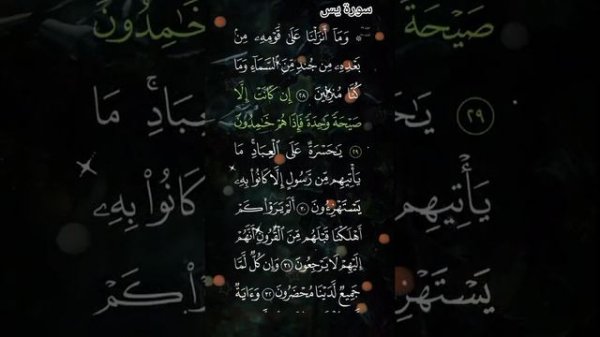 سورة يس
۞ وَمَآ أَنزَلْنَا عَلَىٰ قَوْمِهِۦ مِنۢ
بَعْدِهِۦ مِن جُندٍ مِّنَ ٱلسَّمَآءِ وَمَا
كُنَّا مُنزِلِينَ ٢٨ إِن كَانَتْ إِلَّا
صَيْحَةً وَٰحِدَةً فَإِذَا هُمْ خَٰمِدُونَ
٢٩ يَٰحَسْرَةً عَلَى ٱلْعِبَادِ مَا
يَأْتِيهِم مِّن رَّسُولٍ إِلَّا كَانُوا۟ بِهِۦ
يَسْتَهْزِءُونَ ٣٠ أَلَمْ يَرَوْا۟ كَمْ
أَهْلَكْنَا قَبْلَهُم مِّنَ ٱلْقُرُونِ أَنَّهُمْ
إِلَيْهِمْ لَا يَرْجِعُونَ ٣١ وَإِن كُلٌّ لَّمَّا
جَمِيعٌ لَّدَيْنَا مُحْضَرُونَ ٣٢ وَءَايَةٌ